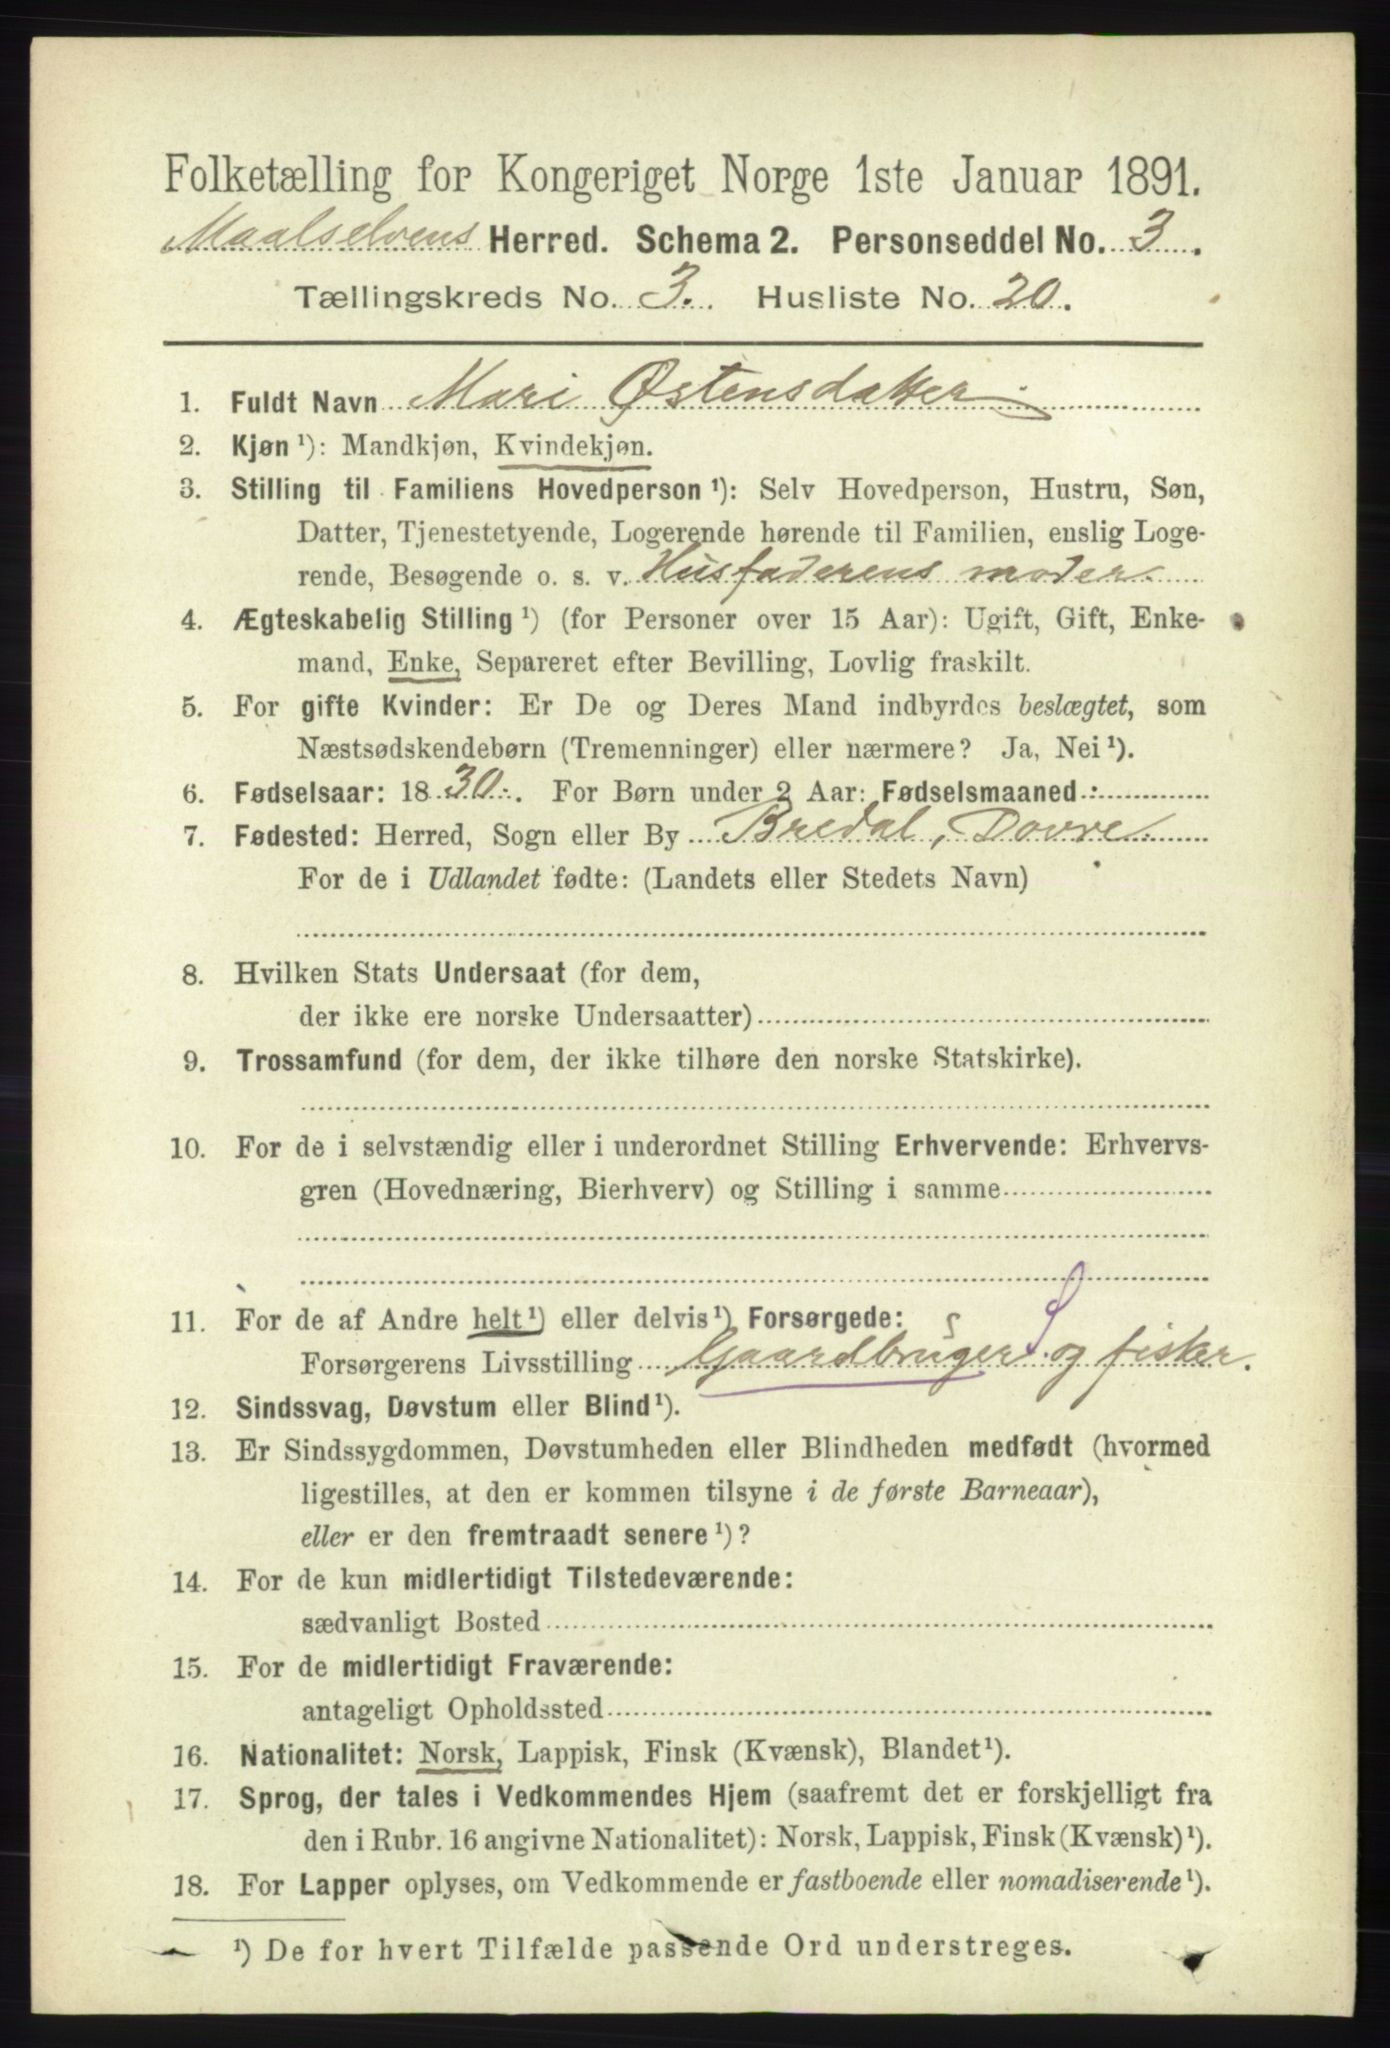 Folketælling for Kongeriget Norge 1ste Januar 1891.
Maalselvens Herred. Schema 2. Personseddel No. 3.
Tællingskreds No. 3. Husliste No. 20.
1. Fuldt Navn Mari Østensdatter.
2. Kjøn ¹): Mandkjøn, Kvindekjøn.
3. Stilling til Familiens Hovedperson ¹): Selv Hovedperson, Hustru, Søn,
Datter, Tjenestetyende, Logerende hørende til Familien, enslig Loge-
rende, Besøgende o. s. v. Husfaderens moder.
4. Ægteskabelig Stilling ¹) (for Personer over 15 Aar): Ugift, Gift, Enke-
mand, Enke, Separeret efter Bevilling, Lovlig fraskilt.
5. For gifte Kvinder: Er De og Deres Mand indbyrdes beslægtet, som
Næstsødskendebørn (Tremenninger) eller nærmere? Ja, Nei ¹).
6. Fødselsaar: 1830. For Børn under 2 Aar: Fødselsmaaned:
7. Fødested: Herred, Sogn eller By Bredal, Dovre.
For de i Udlandet fødte: (Landets eller Stedets Navn)
8. Hvilken Stats Undersaat (for dem,
der ikke ere norske Undersaatter)
9. Trossamfund (for dem, der ikke tilhøre den norske Statskirke).
10. For de i selvstændig eller i underordnet Stilling Erhvervende: Erhvervs-
gren (Hovednæring, Bierhverv) og Stilling i samme
11. For de af Andre helt ¹) eller delvis ¹) Forsørgede:
Forsørgerens Livsstilling Gaardbruger S. og fisker.
12. Sindssvag, Døvstum eller Blind ¹).
13. Er Sindssygdommen, Døvstumheden eller Blindheden medfødt (hvormed
ligestilles, at den er kommen tilsyne i de første Barneaar),
eller er den fremtraadt senere ¹)?
14. For de kun midlertidigt Tilstedeværende:
sædvanligt Bosted
15. For de midlertidigt Fraværende:
antageligt Opholdssted
16. Nationalitet: Norsk, Lappisk, Finsk (Kvænsk), Blandet ¹).
17. Sprog, der tales i Vedkommendes Hjem (saafremt det er forskjelligt fra
den i Rubr. 16 angivne Nationalitet): Norsk, Lappisk, Finsk (Kvænsk) ¹).
18. For Lapper oplyses, om Vedkommende er fastboende eller nomadiserende ¹).
¹) De for hvert Tilfælde passende Ord understreges.